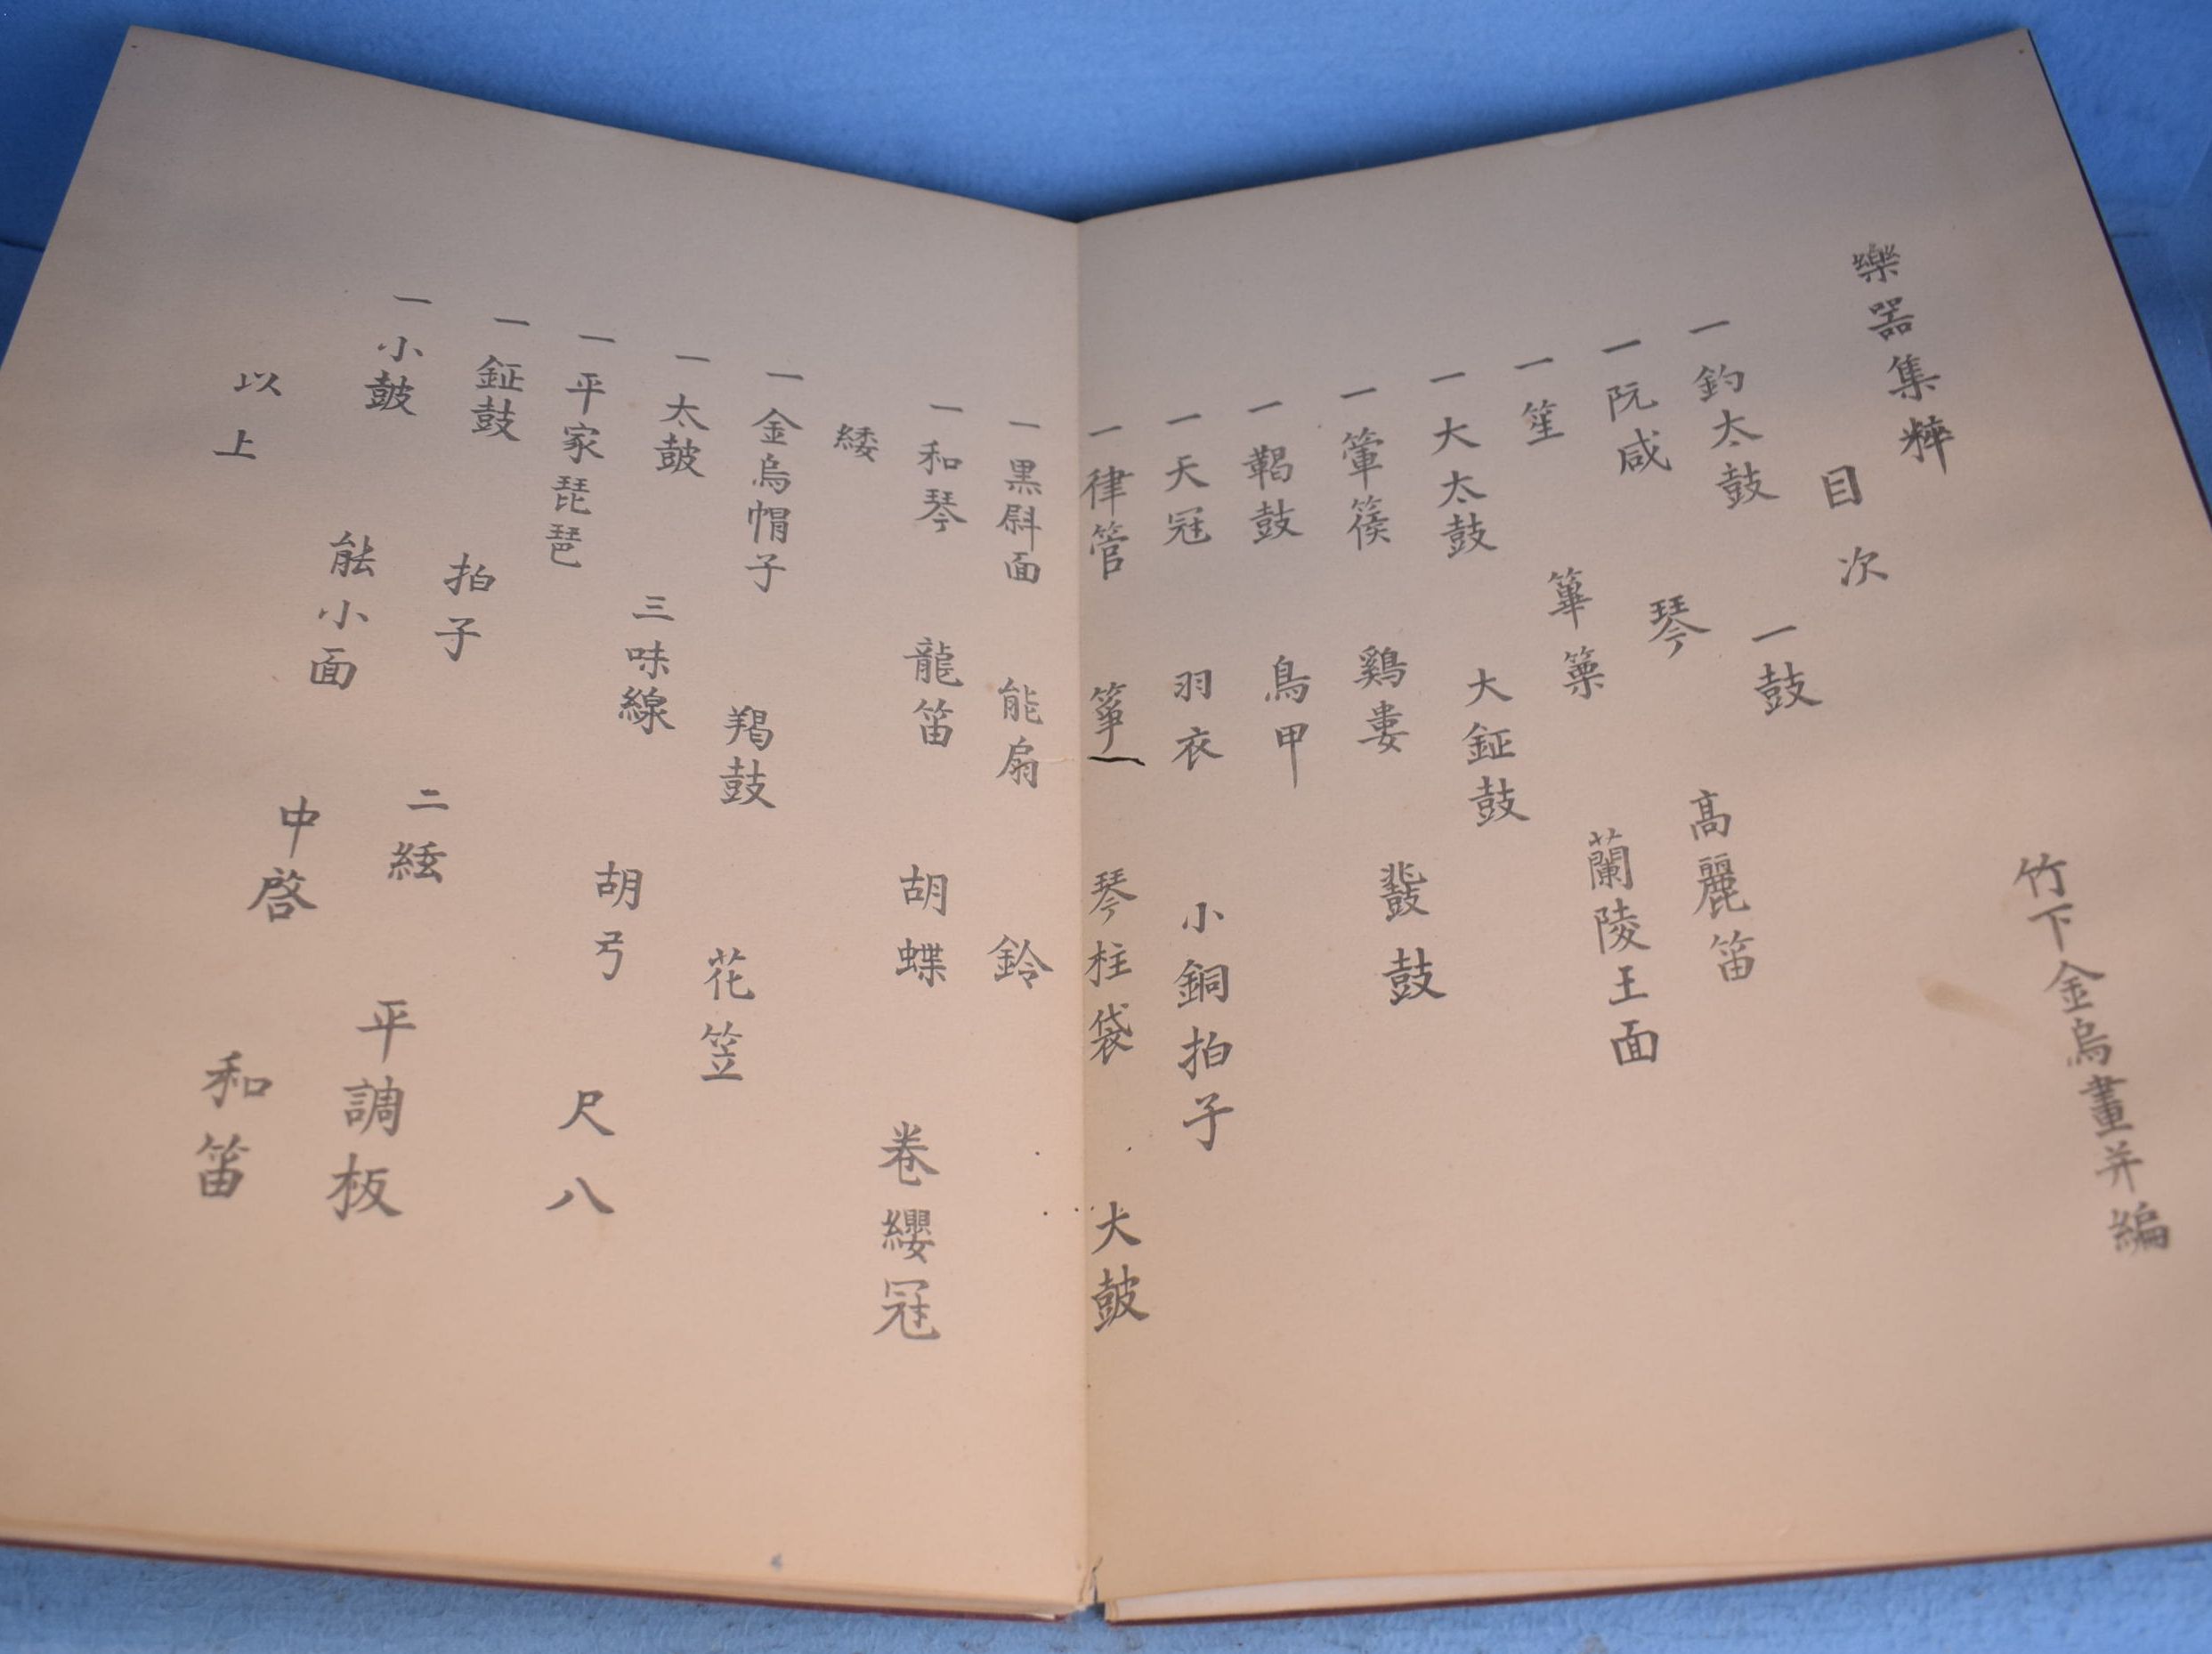 樂器集粹
目次
竹下金烏畫并編
一釣太鼓 一鼓
一阮咸 琴 高麗笛
一笙 篳篥 蘭陵王面
一大太鼓 大鉦鼓
一箜篌 鷄婁 鼗鼓
一鞨鼓 鳥甲
一天冠 羽衣 小銅拍子
一律管 箏 琴柱袋 大皷
一黒尉面 能扇 鈴
一和琴 龍笛 胡蝶 卷纓冠
緌
一金烏帽子 羯鼓 花笠
一太皷 三味線 胡弓 尺八
一平家琵琶
一鉦鼓 拍子 二絃 平調板
一小皷 能小面 中啓 和笛
以上